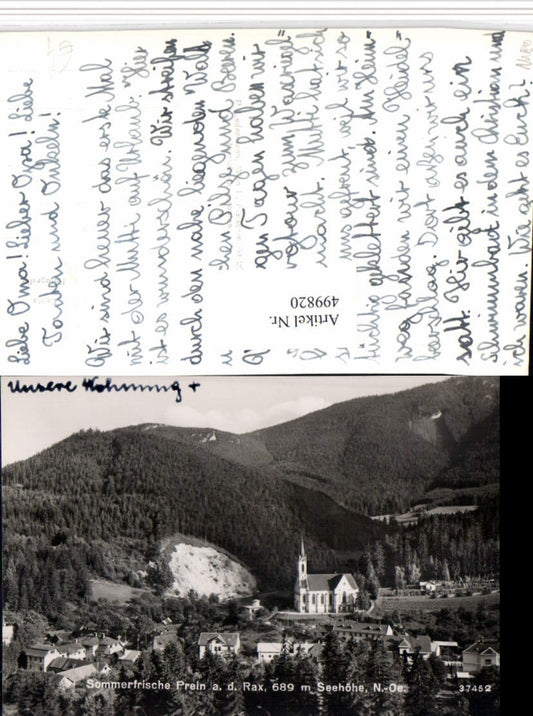 liebe Oma! Lieber Opa! Liebe
Tanten und Onkeln!
Wir sind heuer das erste Mal
mit der Mutti auf Urlaub. Hier
ist es wunderschön. Wir streifen
durch den nahe liegenden Wald
und Beeren.
gen Tagen haben wir
zum Waxriegel
macht. Mutti hat sich
weil wir so
tüchtig geklettert sind. Am Heim-
weg fanden wir einen Heidel
beerschlag. Dort aßen wir uns
satt. Hier gibt es auch ein
Schwimmbad in dem Christian und
ich waren. Wie geht es Euch?
Artikel Nr.
499820
Unsere Wohnung +
Sommerfrische Prein a. d. Rax, 689 m Seehöhe, N.-Oe.
37452